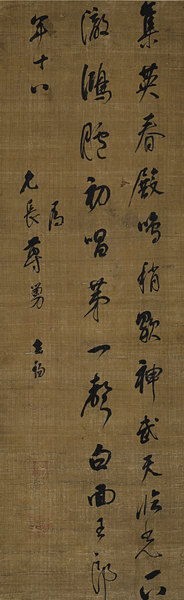 集英春殿鳴梢歇神武天臨光下
澈鴻臚初唱第一聲白面王郎
年十八
為
長尊舅